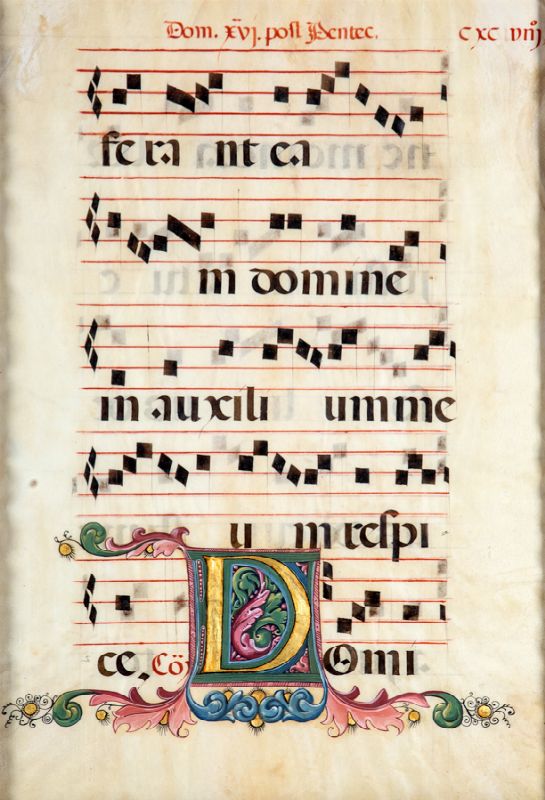 Dom. xvj. post Pentec. cxcviiij
fe ra nt ea
m domine
in auxili um me
u m respi
ce, Cō Domi